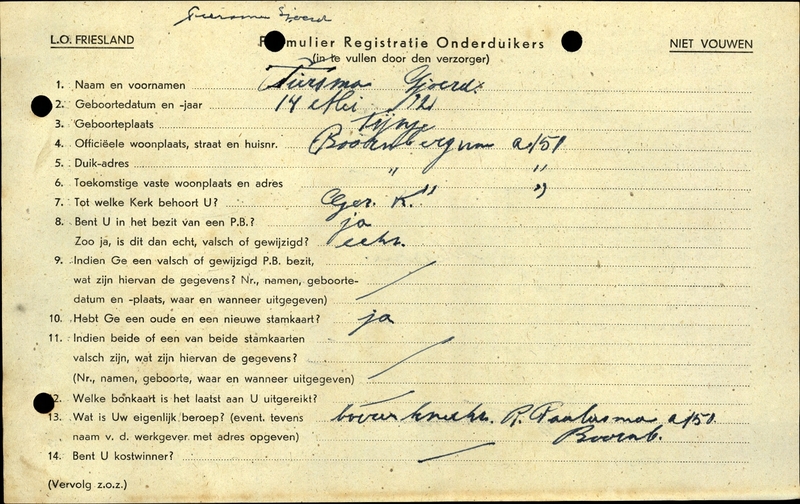 Tiersma Sjoerd
L.O. FRIESLAND Formulier Registratie Onderduikers NIET VOUWEN
(in te vullen door den verzorger)
1. Naam en voornamen Tiersma Sjoerd.
2. Geboortedatum en -jaar 14 Mei /21
3. Geboorteplaats Tijnje
4. Officiëele woonplaats, straat en huisnr. Boornbergum a/51
5. Duik-adres " "
6. Toekomstige vaste woonplaats en adres " "
7. Tot welke Kerk behoort U? Ger. K.
8. Bent U in het bezit van een P.B.? ja
Zoo ja, is dit dan echt, valsch of gewijzigd? echt.
9. Indien Ge een valsch of gewijzigd P.B. bezit,
wat zijn hiervan de gegevens? Nr., namen, geboorte-
datum en -plaats, waar en wanneer uitgegeven)
10. Hebt Ge een oude en een nieuwe stamkaart? ja
11. Indien beide of een van beide stamkaarten
valsch zijn, wat zijn hiervan de gegevens?
(Nr., namen, geboorte, waar en wanneer uitgegeven)
2. Welke bonkaart is het laatst aan U uitgereikt?
13. Wat is Uw eigenlijk beroep? (event. tevens boerenknecht. R. Paulusma a/51
naam v. d. werkgever met adres opgeven) Boornb.
14. Bent U kostwinner?
(Vervolg z.o.z.)